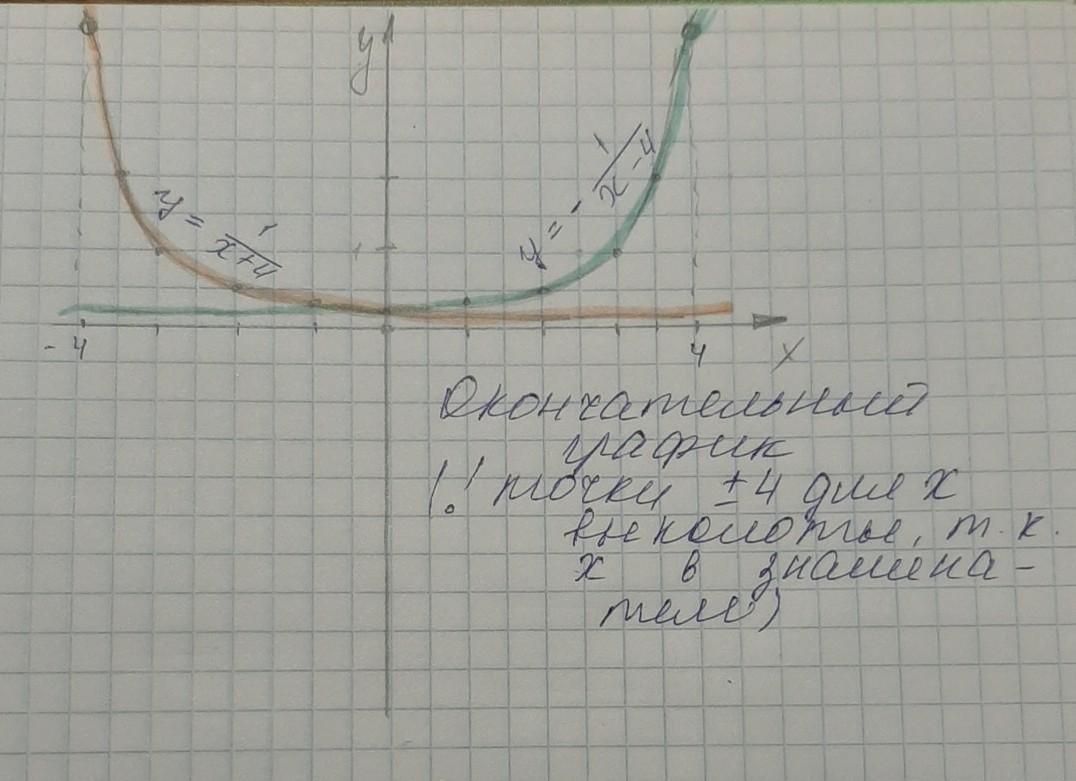 y
1
y = 1/(x+4)
y = - 1/(x-4)
-4
4
x
Окончательный
график
(! точки ±4 для x
выколоты, т.к.
x в знамена-
теле)